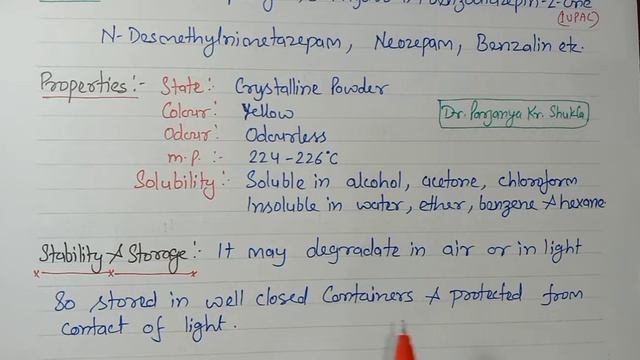 -2-one
(IUPAC)
N-Desmethylnimetazepam, Neozepam, Benzalin etc.
Properties:- State: Crystalline Powder
Colour: Yellow
Odour: Odourless
m.p. :- 224-226°C
Dr. Parjanya Kr. Shukla
Solubility:- Soluble in alcohol, acetone, chloroform
Insoluble in water, ether, benzene & hexane
Stability & Storage:- It may degradate in air or in light
So stored in well closed Containers & protected from
contact of light.